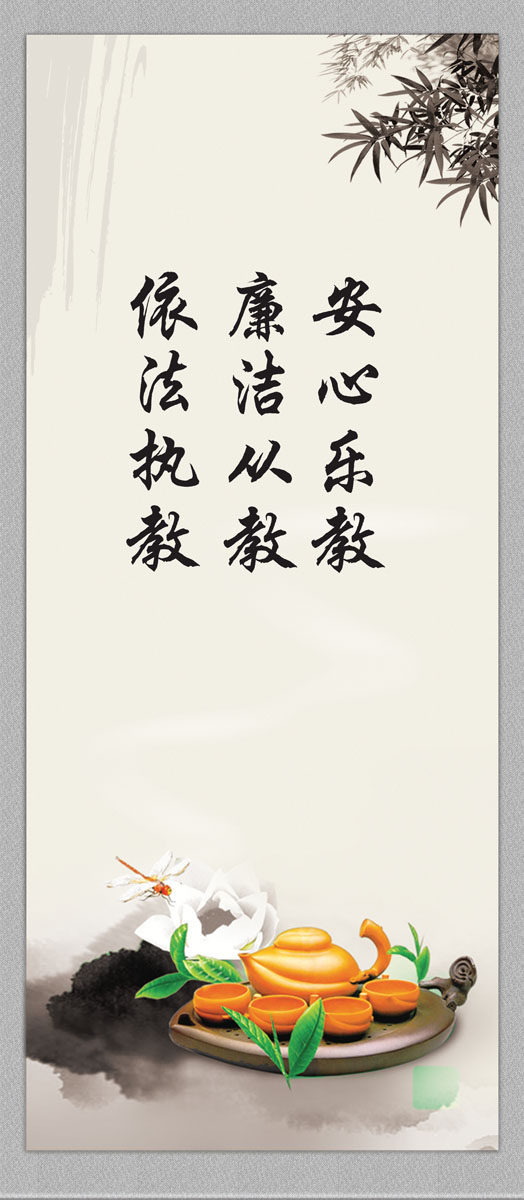 安心乐教
廉洁从教
依法执教